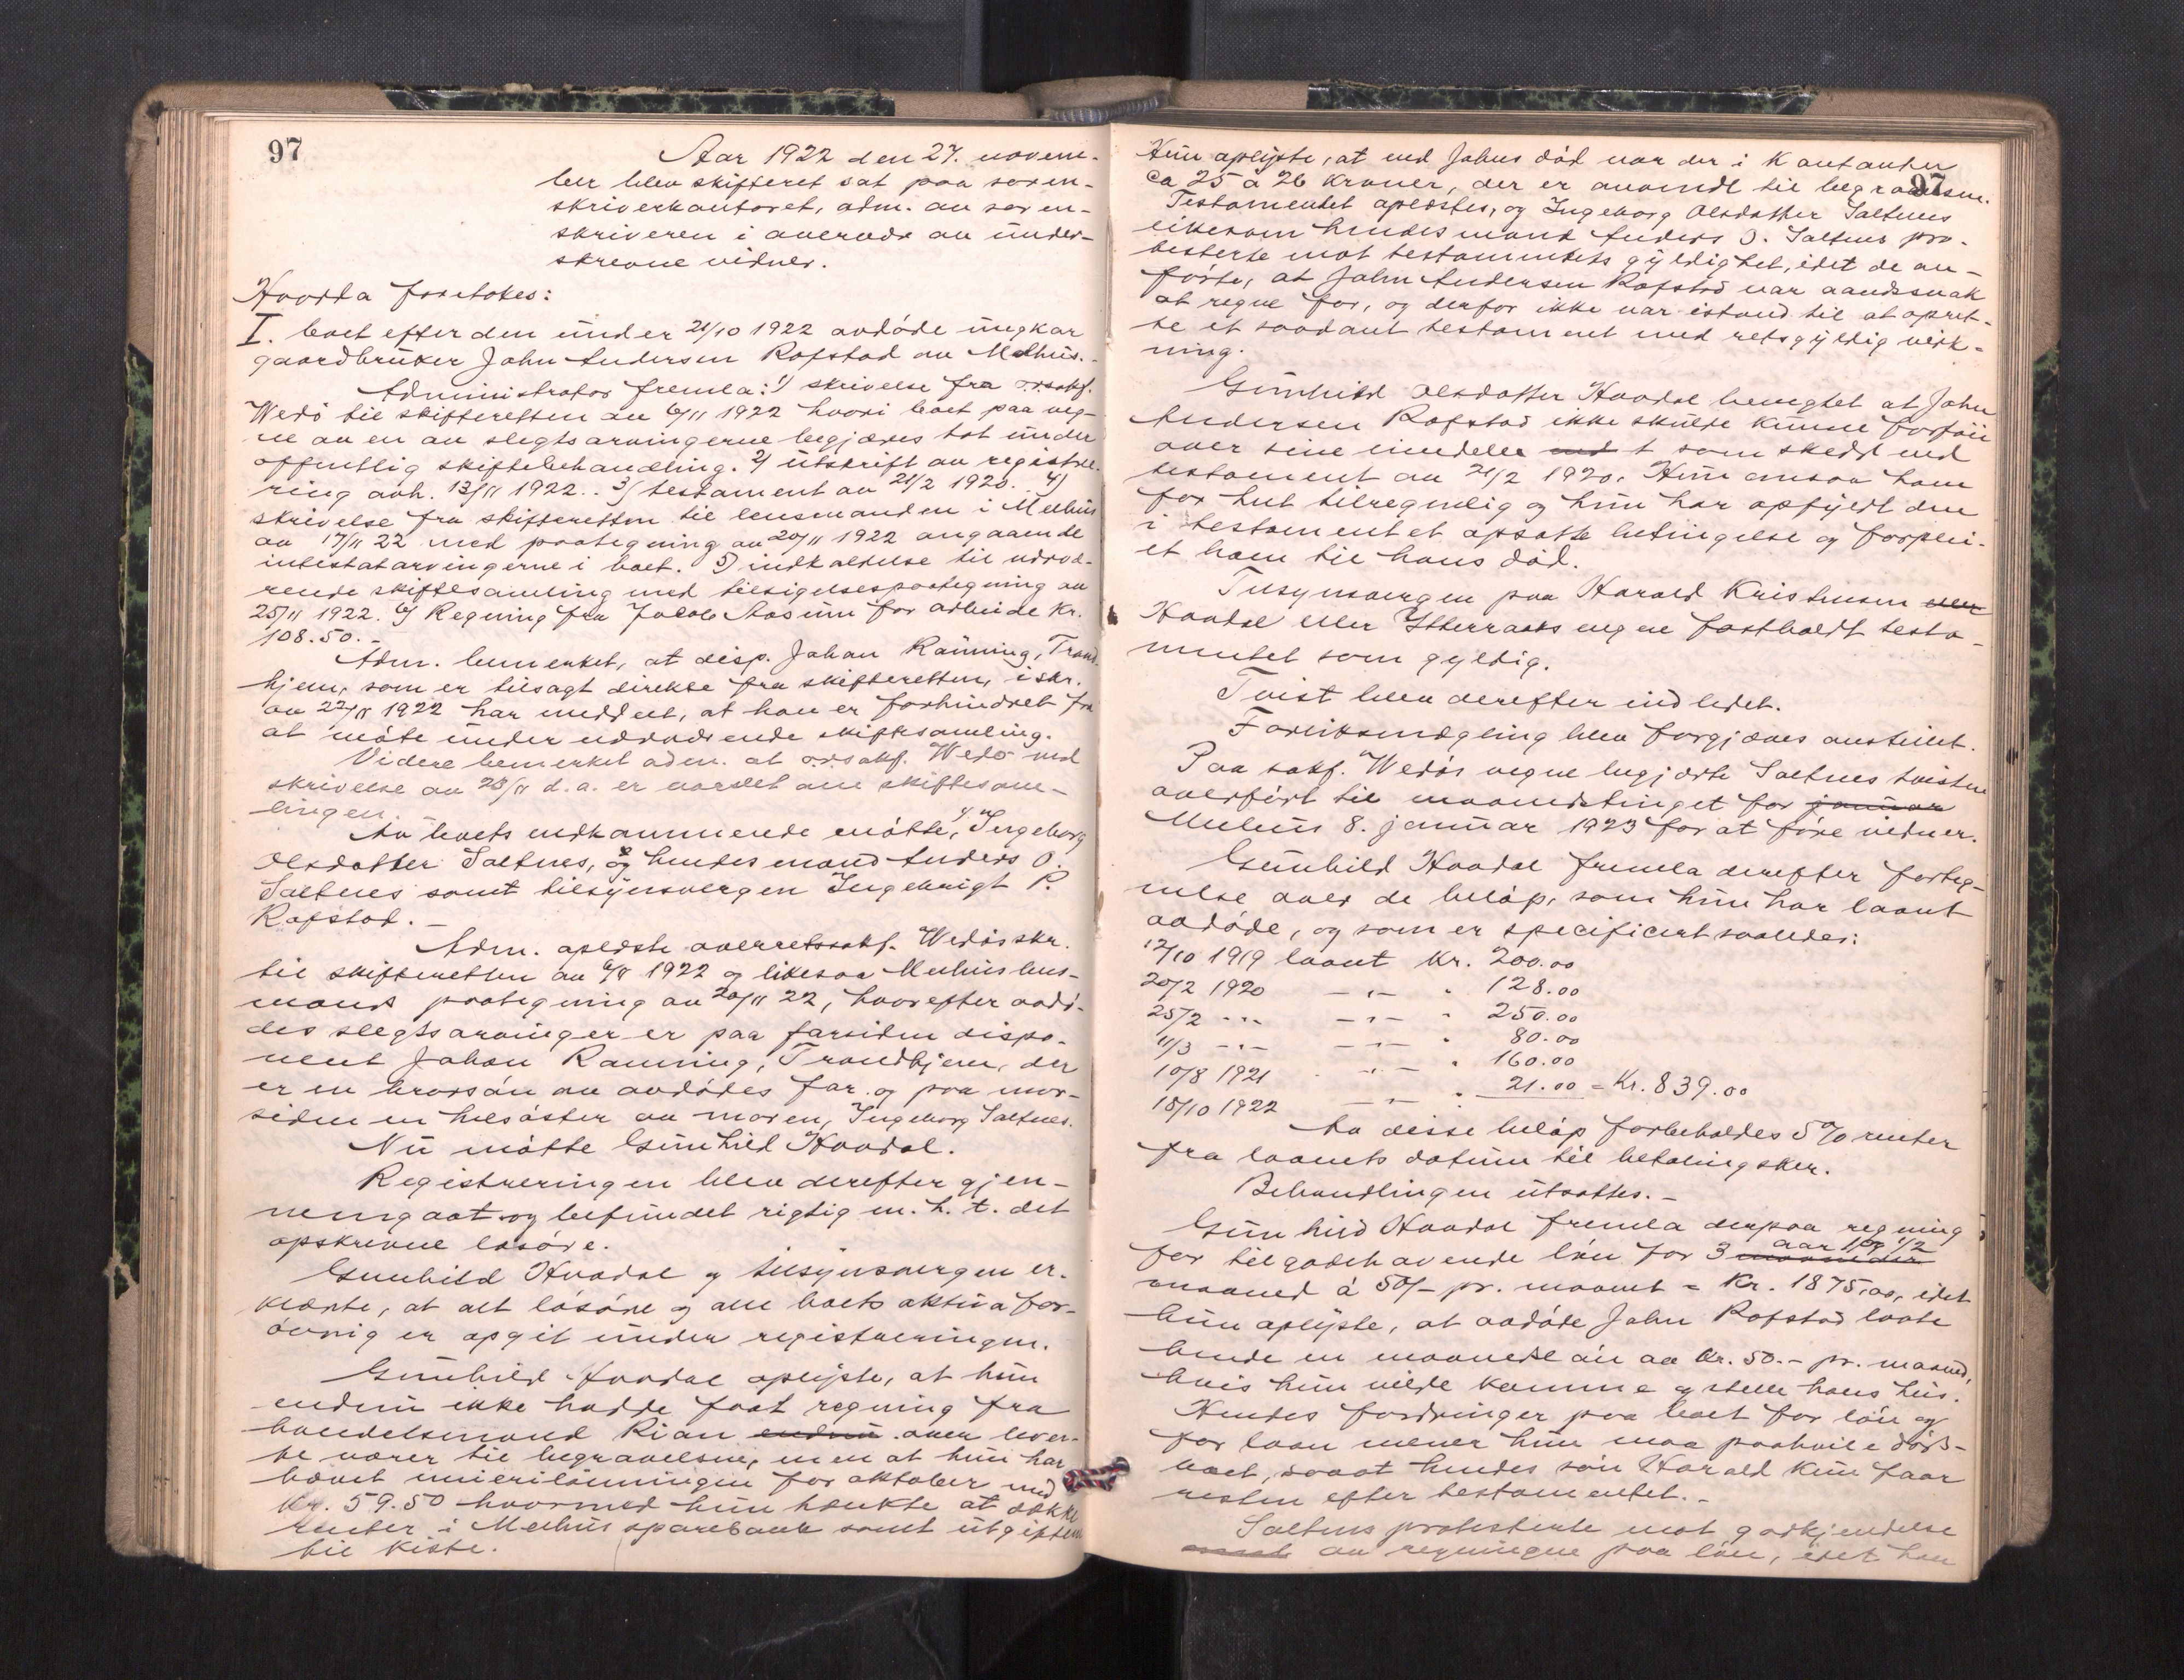 97
Aar 1922 den 27. novem-
ber blev skifteret sat paa soren-
skriverkontoret, adm. av soren-
skriveren i avervær av under-
skrevne vidner.
Hvorda foretokes:
I. boet efter den under 21/10 1922 avdøde ungkar
gaardbruker John Andersen Rofstad av Melhus.-
Administrator fremla: 1) skrivelse fra o.r.sakf.
Wedø til skifteretten av 6/11 1922 hvori boet paa veg-
ne av en av slegtsarvingerne begjæres tat under
offentlig skiftebehandling. 2) utskrift av registre-
ring avh. 13/11 1922.. 3) testament av 21/2 1920. 4)
skrivelse fra skifteretten til lensmanden i Melhus
av 17/11 22 med paategning av 20/11 1922 angaaende
intestatarvingerne i boet. 5) indkaldelse til nærvæ-
rende skiftesamling med tilsigelsespaategning av
25/11 1922. 6) Regning fra Jacob Aasum for arbeide kr.
108.50.-
Adm. bemerket, at disp. Johan Rønning, Trond-
hjem, som er tilsagt direkte fra skifteretten, i skr.
av 22/11 1922 har meddelt, at han er forhindret fra
at møte under nærværende skiftesamling.
Videre bemerket adm. at o.r.sakf. Wedø ved
skrivelse av 23/11 d.a. er varslet om skiftesam-
lingen.
Av boets vedkommende møtte, Ingeborg
Olsdatter Saltnes, og hendes mand Anders O.
Saltnes samt tilsynsvergen Ingebrigt P.
Rofstad.-
Adm. oplæste overretssakf. Wedøs skr.
til skifteretten av 6/11 1922 og likesaa Melhus lens-
mands paategning av 20/11 22, hvorefter avdø-
des slegtsarvinger er paa farsiden dispo-
nent Johan Rønning, Trondhjem, der
er en brorsøn av avdødes far og paa mor-
siden en helsøster av moren, Ingeborg Saltnes.
Nu møtte Gunhild Hovdal.
Registreringen blev derefter gjen-
nemgaat og befundet rigtig m. h. t. det
opskrevne løsøre.
Gunhild Hovdal og tilsynsvergen er-
klærte, at alt løsøre og alle boets aktiva for-
øvrig er opgit under registreringen.
Gunhild Hovdal oplyste, at hun
endnu ikke hadde faat regning fra
handelsmand Rian endnu over lever-
te varer til begravelsen, men at hun har
hævet meierilønningen for oktober med
kr. 59.50 hvormed hun tænkte at dække
renter i Melhus sparebank samt utgiften
til kiste.
97
Hun oplyste, at ved Johns død var der i kontanter
ca 25 a 26 kroner, der er anvendt til begravelsen.
Testamentet oplæstes, og Ingeborg Olsdatter Saltnes
likesom hendes mand Anders O. Saltnes pro-
testerte mot testamentets gyldighet, idet de an-
førte, at John Andersen Rofstad var aandssvak
at regne for, og derfor ikke var istand til at opret-
te et saadant testament med retsgyldig virk-
ning.
Gunhild Olsdatter Hovdal benegtet at John
Andersen Rofstad ikke skulde kunne forføie
over sine eiendele ved t som skedd ved
testament av 21/2 1920. Hun ansaa ham
for helt tilregnelig og hun har opfyldt den
i testamentet opsatte betingelse og forplei-
et ham til hans død.
Tilsynsvergen paa Harald Kristensen eller
Hovdal eller Ytterraas vegne fastholdt testa-
mentet som gyldig.
Tvist blev derefter indledet.
Forliksmægling blev forgjæves anstillet.
Paa sakf. Wedøs vegne begjærte Saltnes tvisten
overført til maanedstinget for januar
Melhus 8. januar 1923 for at føre vidner.
Gunhild Hovdal fremla derefter forteg-
nelse over de beløp, som hun har laant
avdøde, og som er specificert saaledes:
12/10 1919 laant kr. 200.00
20/2 1920 -"- " 128.00
25/2 -"- -"- " 250.00
11/3 -"- -"- " 80.00
10/8 1921 -"- " 160.00
18/10 1922 -"- " 21.00 = Kr. 839.00
Av disse beløp forbeholdes 5% renter
fra laanets datum til betaling sker.
Behandlingen utsattes.-
Gunhild Hovdal fremla derpaa regning
for tilgodehavende løn for 3 maaneder aar 1 og 1/2
maaned à 50/- pr. maaned = Kr. 1875,00, idet
hun oplyste, at avdøde John Rofstad lovte
hende en maanedsløn av kr. 50.- pr. maaned,
hvis hun vilde komme og stelle hans hus.
Hendes fordringer paa boet for løn og
for laan mener hun maa paahvile døds-
boet, saaat hendes søn Harald kun faar
resten efter testamentet.-
Saltnes protesterte mot godkjendelse
av regningen paa løn, idet han